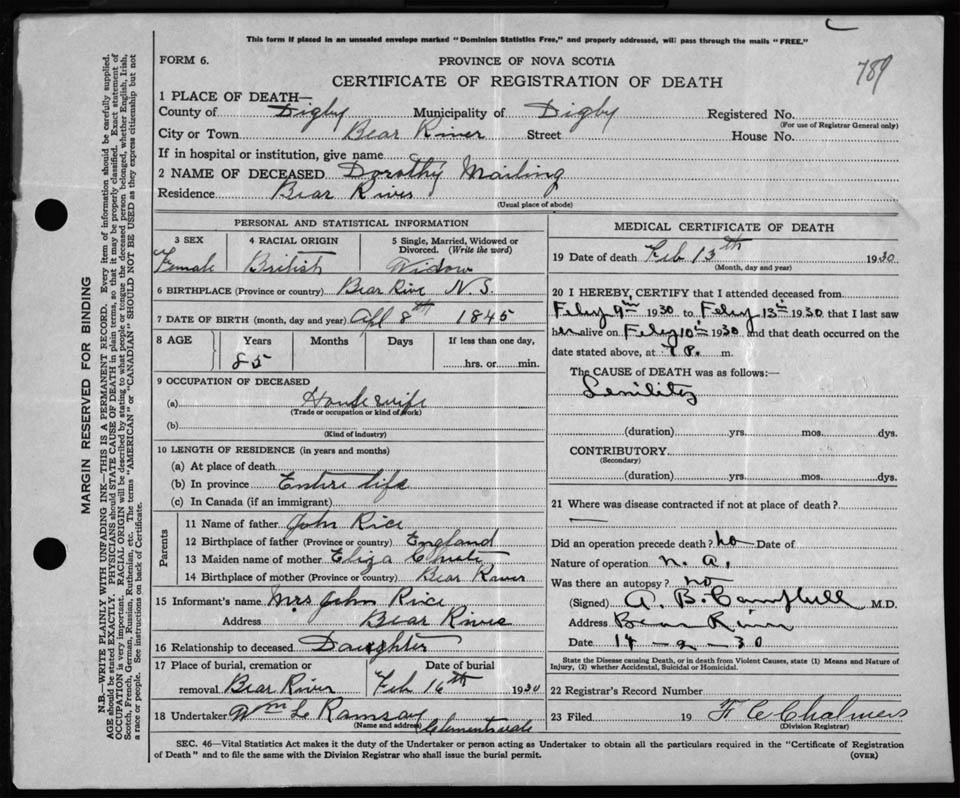 This form if placed in an unsealed envelope marked "Dominion Statistics Free," and properly addressed, will pass through the mails "FREE."
FORM 6.
PROVINCE OF NOVA SCOTIA
789
CERTIFICATE OF REGISTRATION OF DEATH
1 PLACE OF DEATH—
County of Digby Municipality of Digby Registered No.
(For use of Registrar General only)
City or Town Bear River Street House No.
If in hospital or institution, give name
2 NAME OF DECEASED Dorothy Mailing
Residence Bear River
(Usual place of abode)
PERSONAL AND STATISTICAL INFORMATION
3 SEX 4 RACIAL ORIGIN 5 Single, Married, Widowed or Divorced. (Write the word)
Female British Widow
6 BIRTHPLACE (Province or country) Bear River N.S.
7 DATE OF BIRTH (month, day and year) Apl 8th 1845
8 AGE Years Months Days If less than one day,
85 hrs. or min.
9 OCCUPATION OF DECEASED
(a) Housewife
(Trade or occupation or kind of work)
(b)
(Kind of industry)
10 LENGTH OF RESIDENCE (in years and months)
(a) At place of death
(b) In province Entire life
(c) In Canada (if an immigrant)
Parents
11 Name of father John Rice
12 Birthplace of father (Province or country) England
13 Maiden name of mother Eliza Chute
14 Birthplace of mother (Province or country) Bear River
15 Informant's name Mrs John Rice
Address Bear River
16 Relationship to deceased Daughter
17 Place of burial, cremation or Date of burial
removal Bear River Feb 16th 1930
18 Undertaker Wm L Ramsay
(Name and address) Clementsvale
MEDICAL CERTIFICATE OF DEATH
19 Date of death Feb 13th 1930
(Month, day and year)
20 I HEREBY CERTIFY that I attended deceased from
Feby 9th 1930 to Feby 13th 1930 that I last saw
her alive on Feby 10th 1930 and that death occurred on
date stated above, at 7 P. m.
The CAUSE of DEATH was as follows:—
Senility
(duration) yrs. mos. dys.
CONTRIBUTORY
(Secondary)
(duration) yrs. mos. dys.
21 Where was disease contracted if not at place of death?
—
Did an operation precede death? no Date of
Nature of operation n. a.
Was there an autopsy? no
(Signed) A. B. Campbell M.D.
Address Bear River
Date 14-2-30
State the Disease causing Death, or in death from Violent Causes, state (1) Means and Nature of Injury, (2) whether Accidental, Suicidal or Homicidal.
22 Registrar's Record Number
23 Filed 19 F C Chalmers
(Division Registrar)
SEC. 46—Vital Statistics Act makes it the duty of the Undertaker or person acting as Undertaker to obtain all the particulars required in the "Certificate of Registration
of Death" and to file the same with the Division Registrar who shall issue the burial permit. (OVER)
MARGIN RESERVED FOR BINDING
N.B.—WRITE PLAINLY WITH UNFADING INK—THIS IS A PERMANENT RECORD. Every item of information should be carefully supplied.
AGE should be stated EXACTLY. PHYSICIANS should STATE CAUSE OF DEATH in plain terms, so that it may be properly classified. Exact statement of
OCCUPATION is very important. RACIAL ORIGIN will be described by stating to what people or tongue the deceased person belonged, whether English, Irish,
Scotch, French, German, Russian, Ruthenian, etc. The terms "AMERICAN" or "CANADIAN" SHOULD NOT BE USED as they express citizenship but not
a race or people. See instructions on back of Certificate.